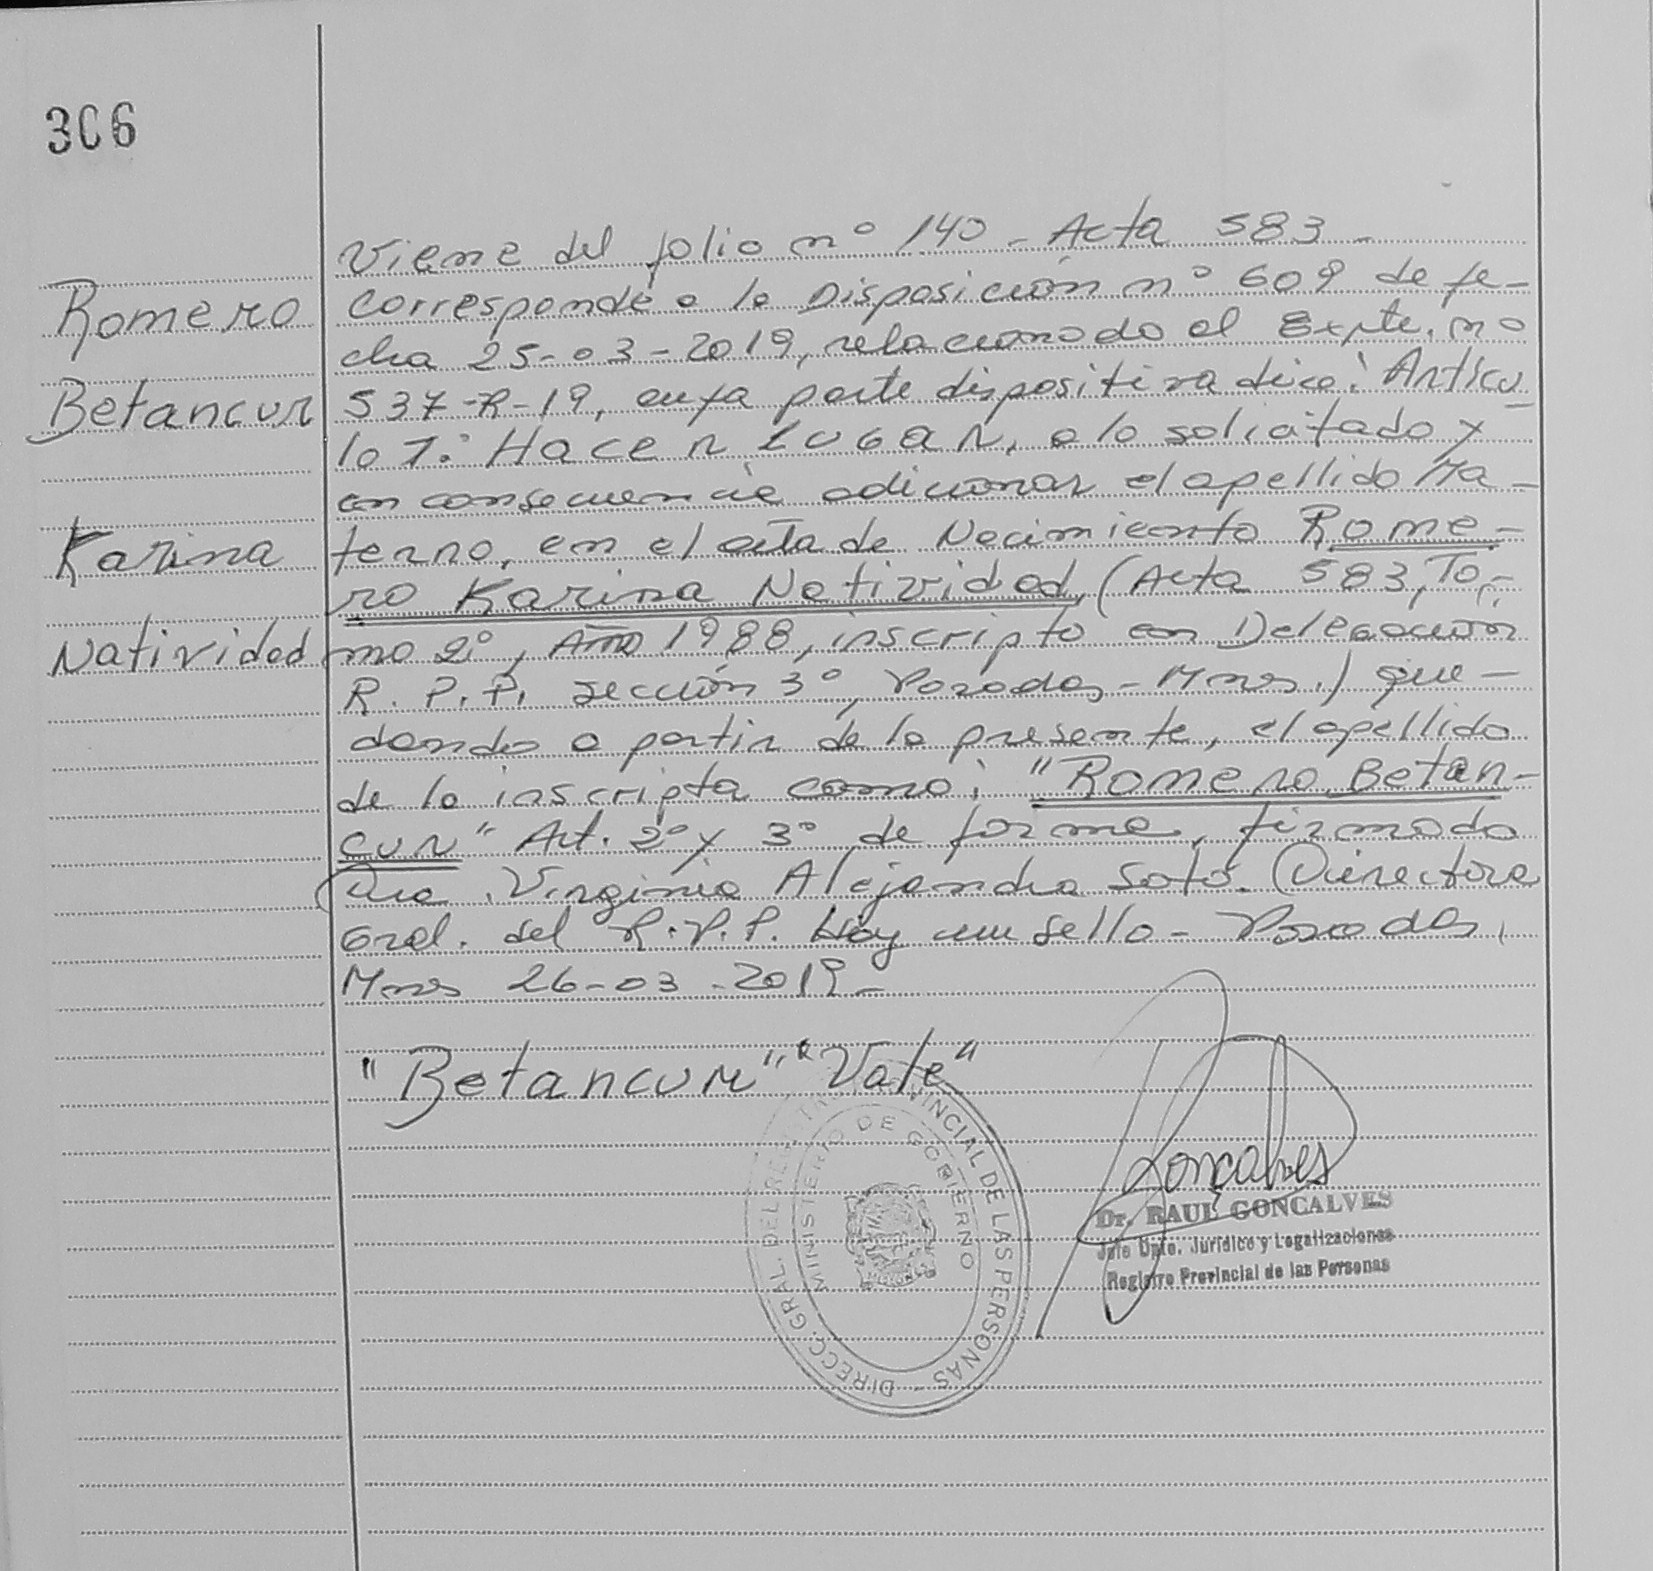 306
Romero
Betancur
Karina
Natividad
Viene del folio nº 140 - Acta 583 -
Corresponde a la Disposición nº 609 de fe-
cha 25-03-2019, relacionado al Expte. nº
537-R-19, cuya parte dispositiva dice: Artícu
lo 1º: Hacer LUGAR, a lo solicitado y
en consecuencia adicionar el apellido Ma-
terno, en el acta de Nacimiento Rome-
ro Karina Natividad, (Acta 583, To-
mo 2º, Año 1988, inscripto en Delegación
R. P. P. sección 3º, Posadas - Mnes.) que-
dando a partir de la presente, el apellido
de la inscripta como: "Romero Betan-
cur" Art. 2º y 3º de forma, firmado
Dra. Virginia Alejandra Soto. Directora
Gral. del R.P.P. Hay un sello - Posadas,
Mnes 26-03-2019 -
"Betancur" "Vale"
DIRECC. GRAL. DEL REGISTRO PROVINCIAL DE LAS PERSONAS -
MINISTERIO DE GOBIERNO
Goncalves
Dr. RAUL GONCALVES
Jefe Dpto. Jurídico y Legalizaciones
Registro Provincial de las Personas